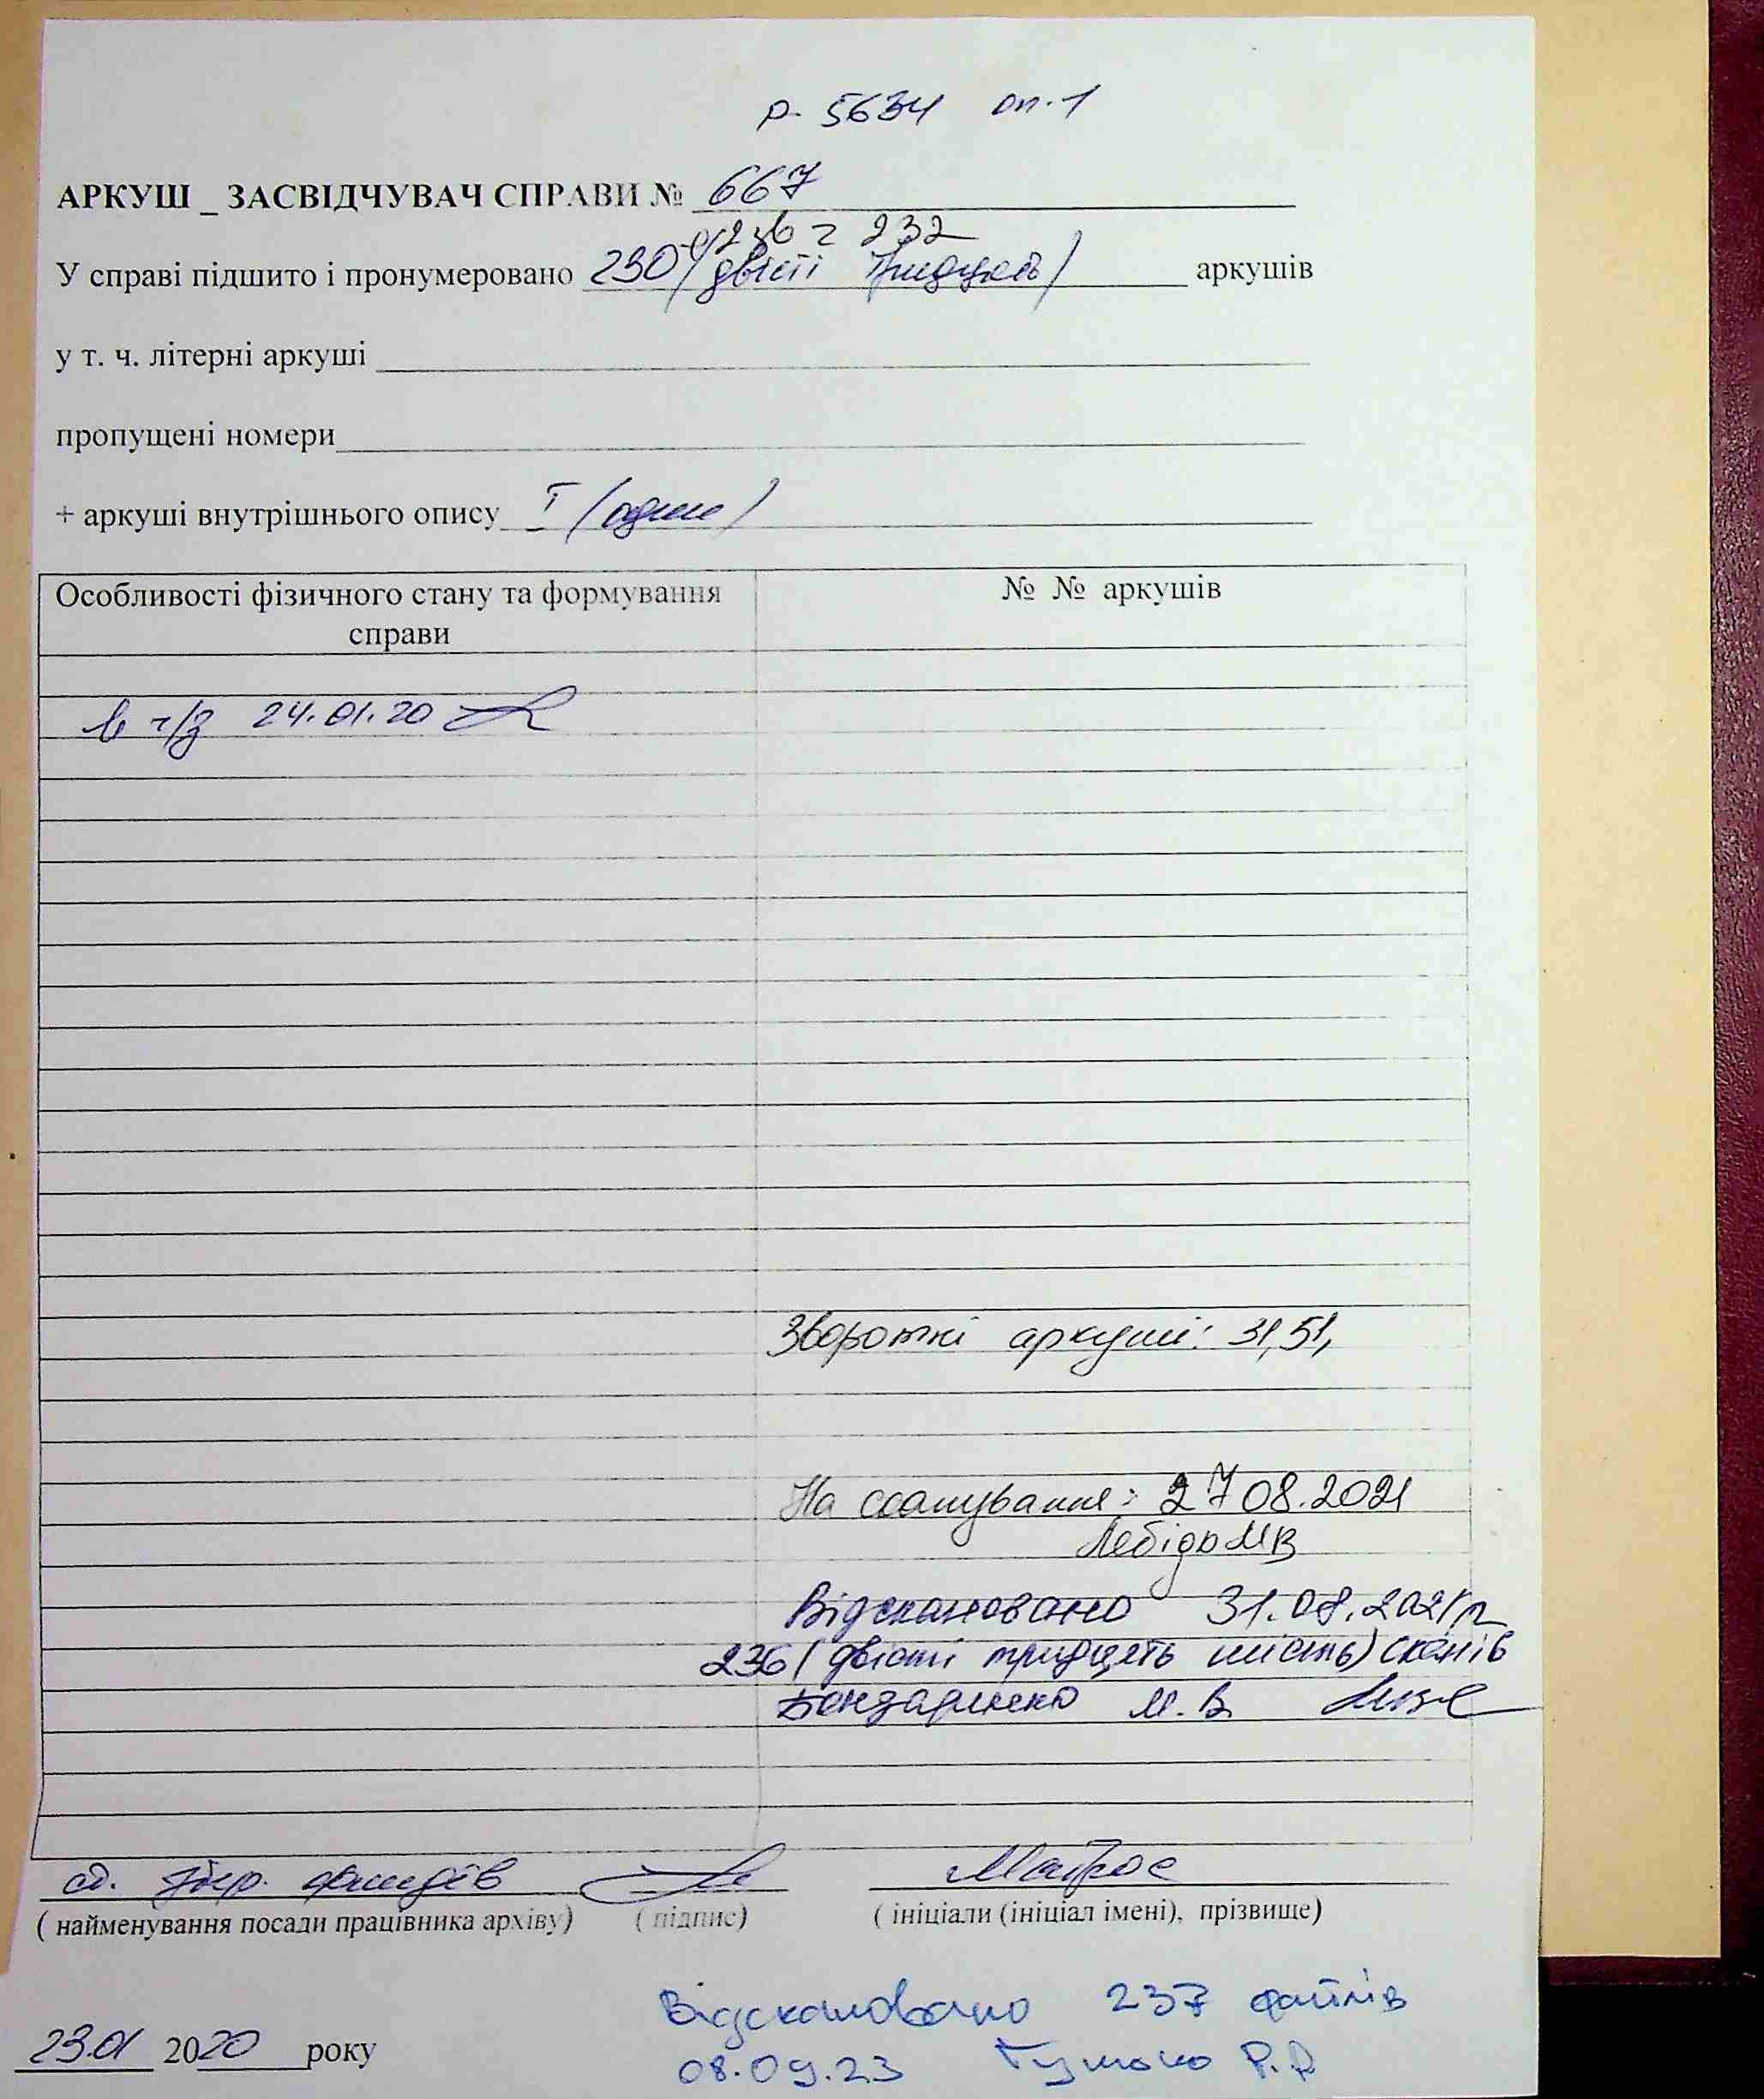 Р. 5634 оп. 1
АРКУШ _ ЗАСВІДЧУВАЧ СПРАВИ № 667
+ 2 зв = 232
У справі підшито і пронумеровано 230 / двісті тридцять / аркушів
у т. ч. літерні аркуші
пропущені номери
+ аркуші внутрішнього опису I / один /
Особливості фізичного стану та формування справи
№ № аркушів
в ч/з 24.01.20
Зворотні аркуші: 31, 51,
На сканування: 27 08.2021
Лебідь МВ
Відскановано 31.08.2021р
236 (двісті тридцять шість) сканів
М.В.
ст. збер. фондів
( найменування посади працівника архіву) ( підпис) ( ініціали (ініціал імені), прізвище)
23.01 2020 року
Відскановано 237 файлів
08.09.23 Р.Р